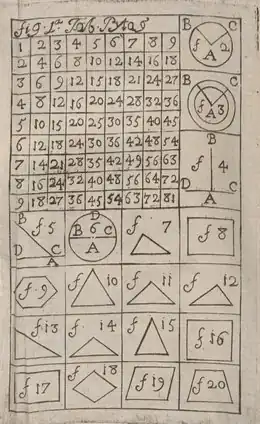 fig. 1.a Tab. Pitag
1 2 3 4 5 6 7 8 9
2 4 6 8 10 12 14 16 18
3 6 9 12 15 18 21 24 27
4 8 12 16 20 24 28 32 36
5 10 15 20 25 30 35 40 45
6 12 18 24 30 36 42 48 54
7 14 21 28 35 42 49 56 63
8 16 24 32 40 48 56 64 72
9 18 27 36 45 54 63 72 81
B C
f 2
A
B C
f 3
A
B
f 4
D A C
B
f 5
D C
A
D
B 6 C
A
f. 7
f 8
f. 9
f 10
f 11
f. 12
f. 13
f. 14
f 15
f 16
f 17
f 18
f 19
f 20